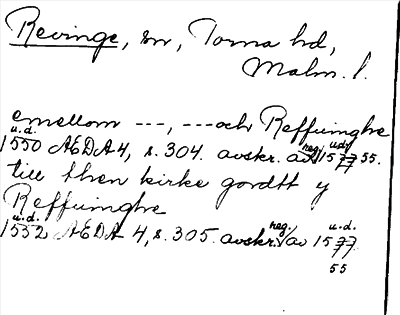 Revinge, sn, Torna hd,
Malm. l.
emellom ---, --- och Reffuinghe
u.d. reg. u.d.
1550 AEDA 4, s. 304. avskr. av 1577 55.
till then kirke gordtt y
Reffuinghe
u.d. reg. u.d.
1552 AEDA 4, s. 305. avskr. av 1577
55